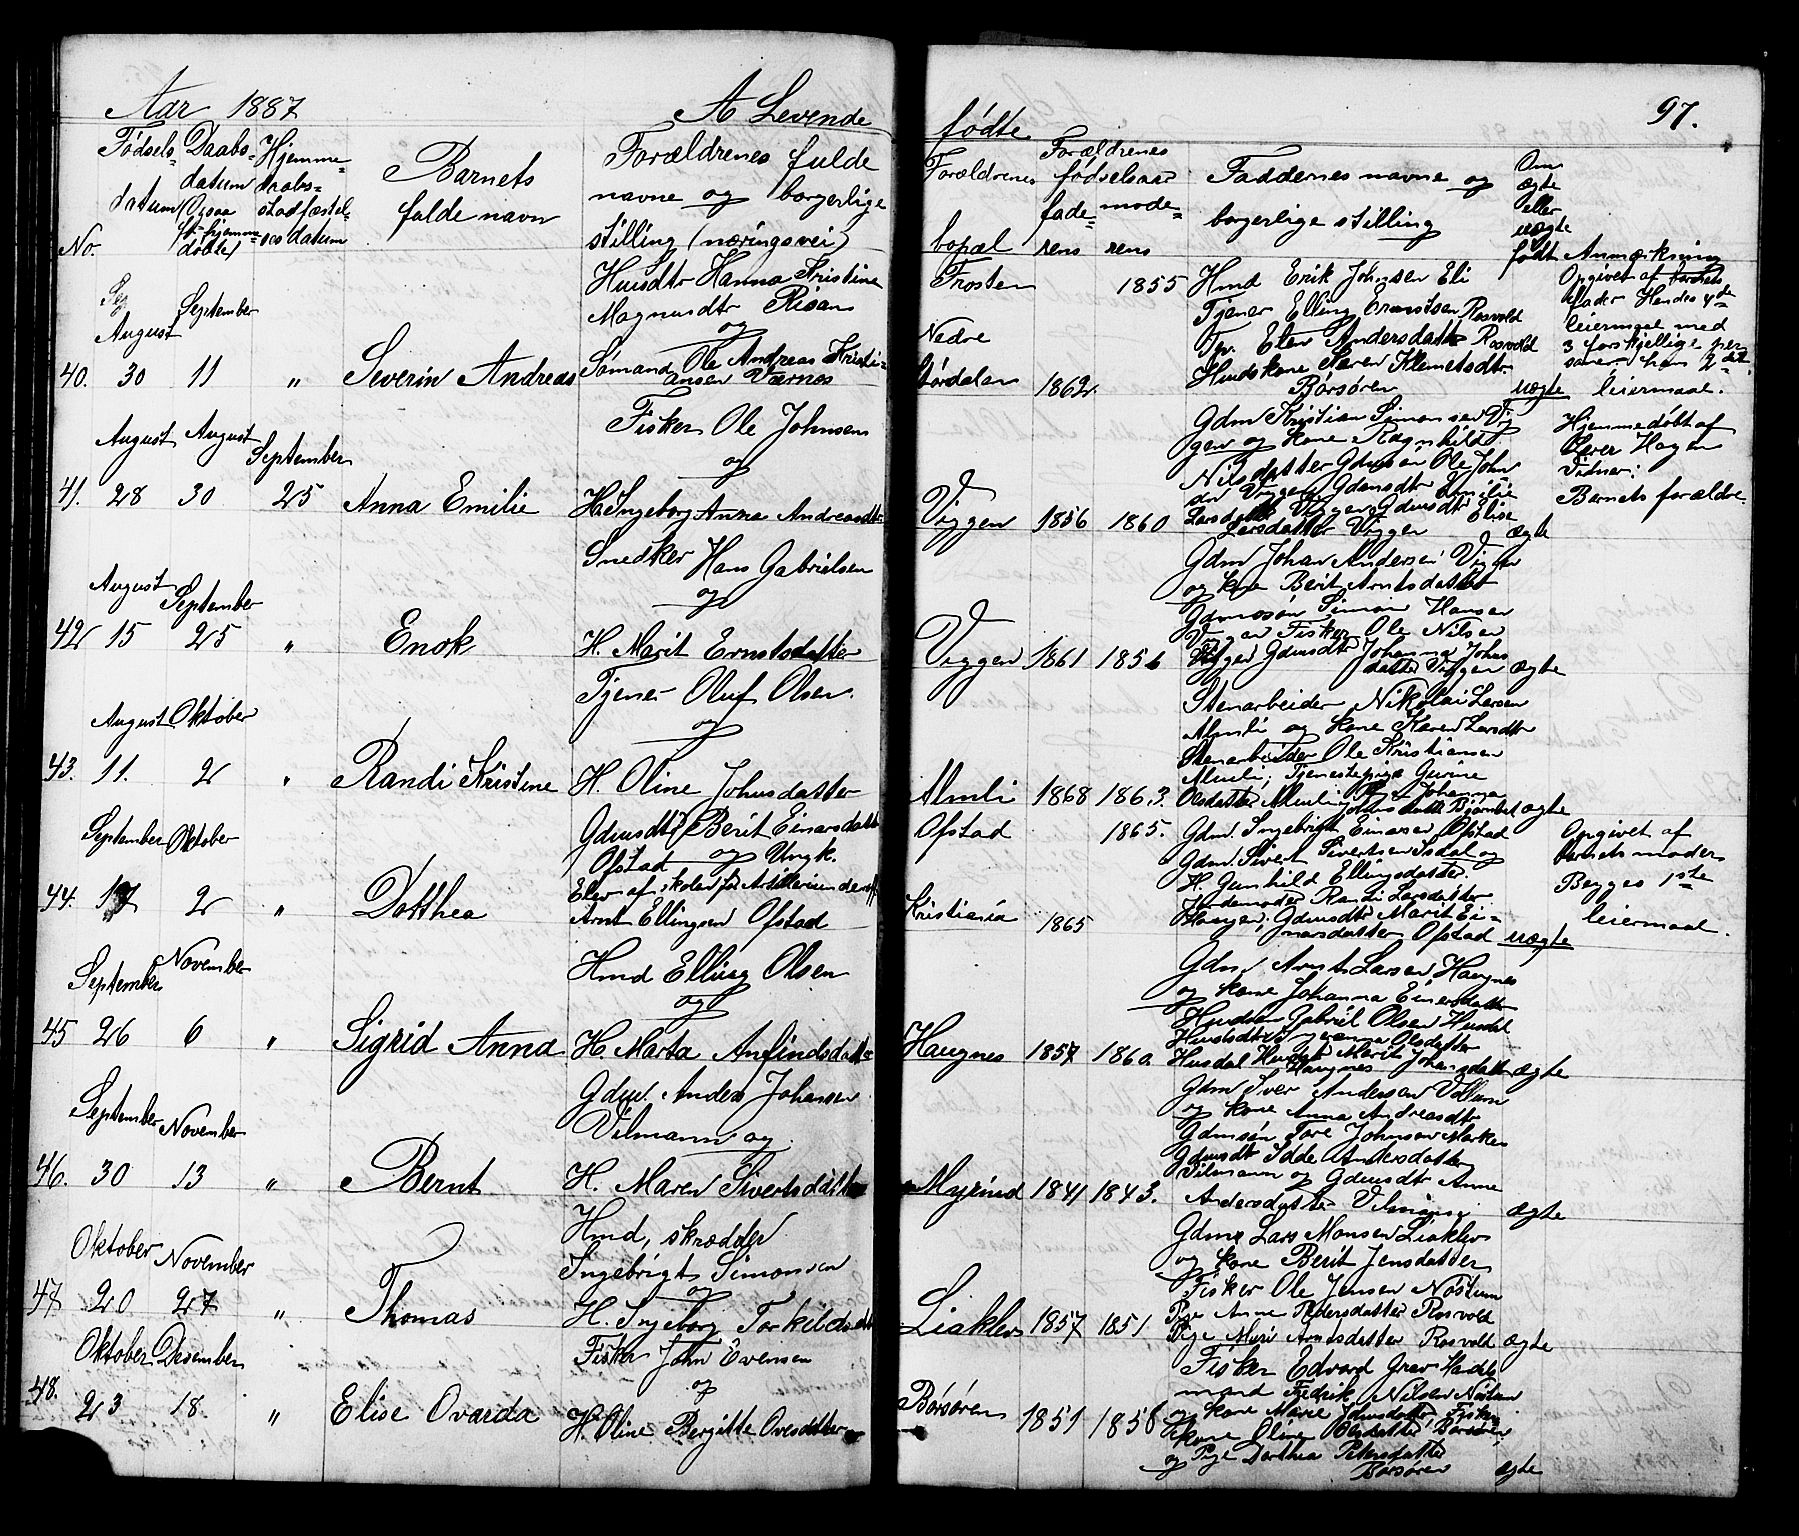 Aar 1887
A Levende
fødte
97.
No.
Fødsels-
datum
Daabs-
datum
(Ogsaa
for hjemme-
døbte)
Hjemme-
daabs-
stadfæstel-
ses datum
Barnets
fulde navn
Forældrenes fulde
navne og borgerlige
stilling (næringsvei)
Forældrenes
bopæl
Forældrenes
fødselsaar
fade-
rens
mode-
rens
Faddernes navne og
borgerlige stilling
Om
ægte
eller
uægte
født
Anmærkning
40.
August
30
September
11
"
Severin Andreas
Husdtr Hanna Kristine
Magnusdtr Risan
og
Sømand Ole Andreas Kristi-
ansen Værnes
Frosten
1855
Nedre
Størdalen
1862
Hmd Erik Johnsen Eli
Tjener Elling Arntsen Rosvold
Tp. Elen Andersdatter Rosvold
Husdskone Søren Klemetsdtr
Børsøren
uægte
Opgivet af barnets
fader Hendes 4de
leiermaal med
3 forskjellige per
soner, hans 2det
leiermaal.
41.
August
28
August
30
September
25
Anna Emilie
Fisker Ole Johnsen
og
H. Ingeborg Anna Andreasdtr
Viggen
1856
1860
Gdm Kristian Simonsen Vig
gen og kone Ragnhild
Nilsdatter Gdmsøn Ole John
sen Viggen Gdmsdtr Emilie
Larsdatter Viggen Gdmsdtr Elise
Larsdatter Viggen
ægte
Hjemmedøbt af
Iver Hagen
Vidner:
Barnets forældre.
42
August
15
September
25
"
Enok
Snedker Hans Gabrielsen
og
H. Marit Ernstsdatter
Viggen
1861
1856
Gdm Johan Andersen Viggen
og kone Berit Arntsdatter
Gdmssøn Simon Hansen
Viggen Fisker Ole Nilsen
Viggen Gdmsdtr Johanna Johns
datter Viggen
ægte
43.
August
11.
Oktober
2
"
Randi Kristine
Tjener Oluf Olsen.
og
H. Oline Johnsdatter
Almli
1868
1863.
Stenarbeider Nikolai Larsen
Almli og kone Karen Larsdtr
Stenarbeider Ole Kristiansen
Almli; Tjenestepige Gurine
Olsdatter Almli
ægte
44.
September
17
Oktober
2
"
Dotthea
Gdmsdtr Berit Einarsdatter
Ofstad og Ungk.
Elev af skolen for Artilleriunderoff
Arnt Ellingsen Ofstad
Ofstad
1865.
Kristiania
1865
Gdm. Ingebrigt Einarsen Ofstad
Gdm. Sivert Sivertsen Isdal og
H. Gunhild Ellingsdatter.
Jordemoder Randi Larsdatter
Haugen; Gdmsdtr Marit Ei-
narsdatter Ofstad
uægte
Opgivet af
barnets moder
Begges 1ste
leiermaal.
45
September
26
November
6
"
Sigrid Anna
Hmd Elling Olsen
og
H. Marta Anfindsdatter
Haugnes
1857
1860
Gdm Arnt Larsen Haugnes
og kone Johanna Einersdatter
Husmd Gabriel Olsen Husdal
Husdal Husdtr Marit Johansdatter
Haugnes
ægte
46.
September
30
November
13
"
Bernt
Gdm. Anders Johansen
Vilmann og
H. Maren Sivertsdatter
Myrind
1841
1843.
Gdm Iver Andersen Vollum
og kone Anna Andreasdtr
Gdmsøn Tore Johnsen Marken
Gdmsdtr Idde Andersdatter
Vilmann og Gdmsdtr Anne
Andersdatter Vilmann
ægte
47
Oktober
20
November
27
"
Thomas
Hmd, skrædder
Ingebrigt Simonsen
og
H. Ingeborg Torkildsdtr
Liaklev
1857
1851
Gdm Lars Monsen Liaklev
og kone Berit Jensdatter
Fisker Ole Jensen Nøstum
Pige Anne Pedersdatter Rosvold
Pige Mari Arntsdatter Rosvold
ægte
48.
Oktober
23
Desember
18
"
Elise Ovarda
Fisker John Evensen
og
H. Oline Bergitte Ovesdatter
Børsøren
1851
1856
Fisker Edvard Grav Handels
mand Fredrik Nilsen Nøstum
og kone Marie Johnsdatter, Fisker
kone Oline Olsdatter Børsøren,
og Pige Dorthea Petersdatter
Børsøren
ægte